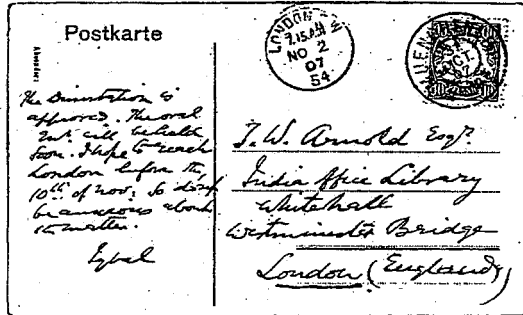 Postkarte
Absender:
LONDON
7.15 AM
NO 2
07
54
OCT.
07
10
The Dissertation is
approved. The oral
will be held
soon. I hope to reach
London before the
10th of Nov: so don't
be anxious about
the matter.
Iqbal
T. W. Arnold Esqr.
India Office Library
Whitehall
Westminster Bridge
London (England)